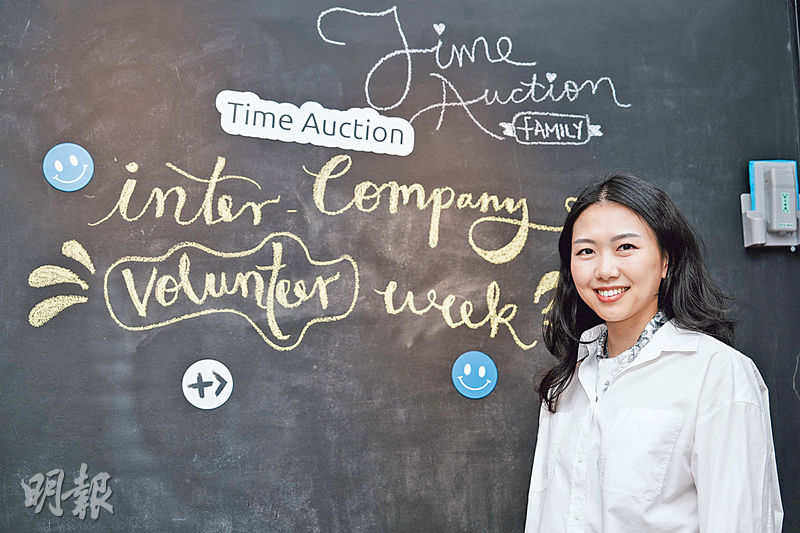 Time
Auction
FAMILY
Time Auction
inter-Company
Volunteer week?
明報